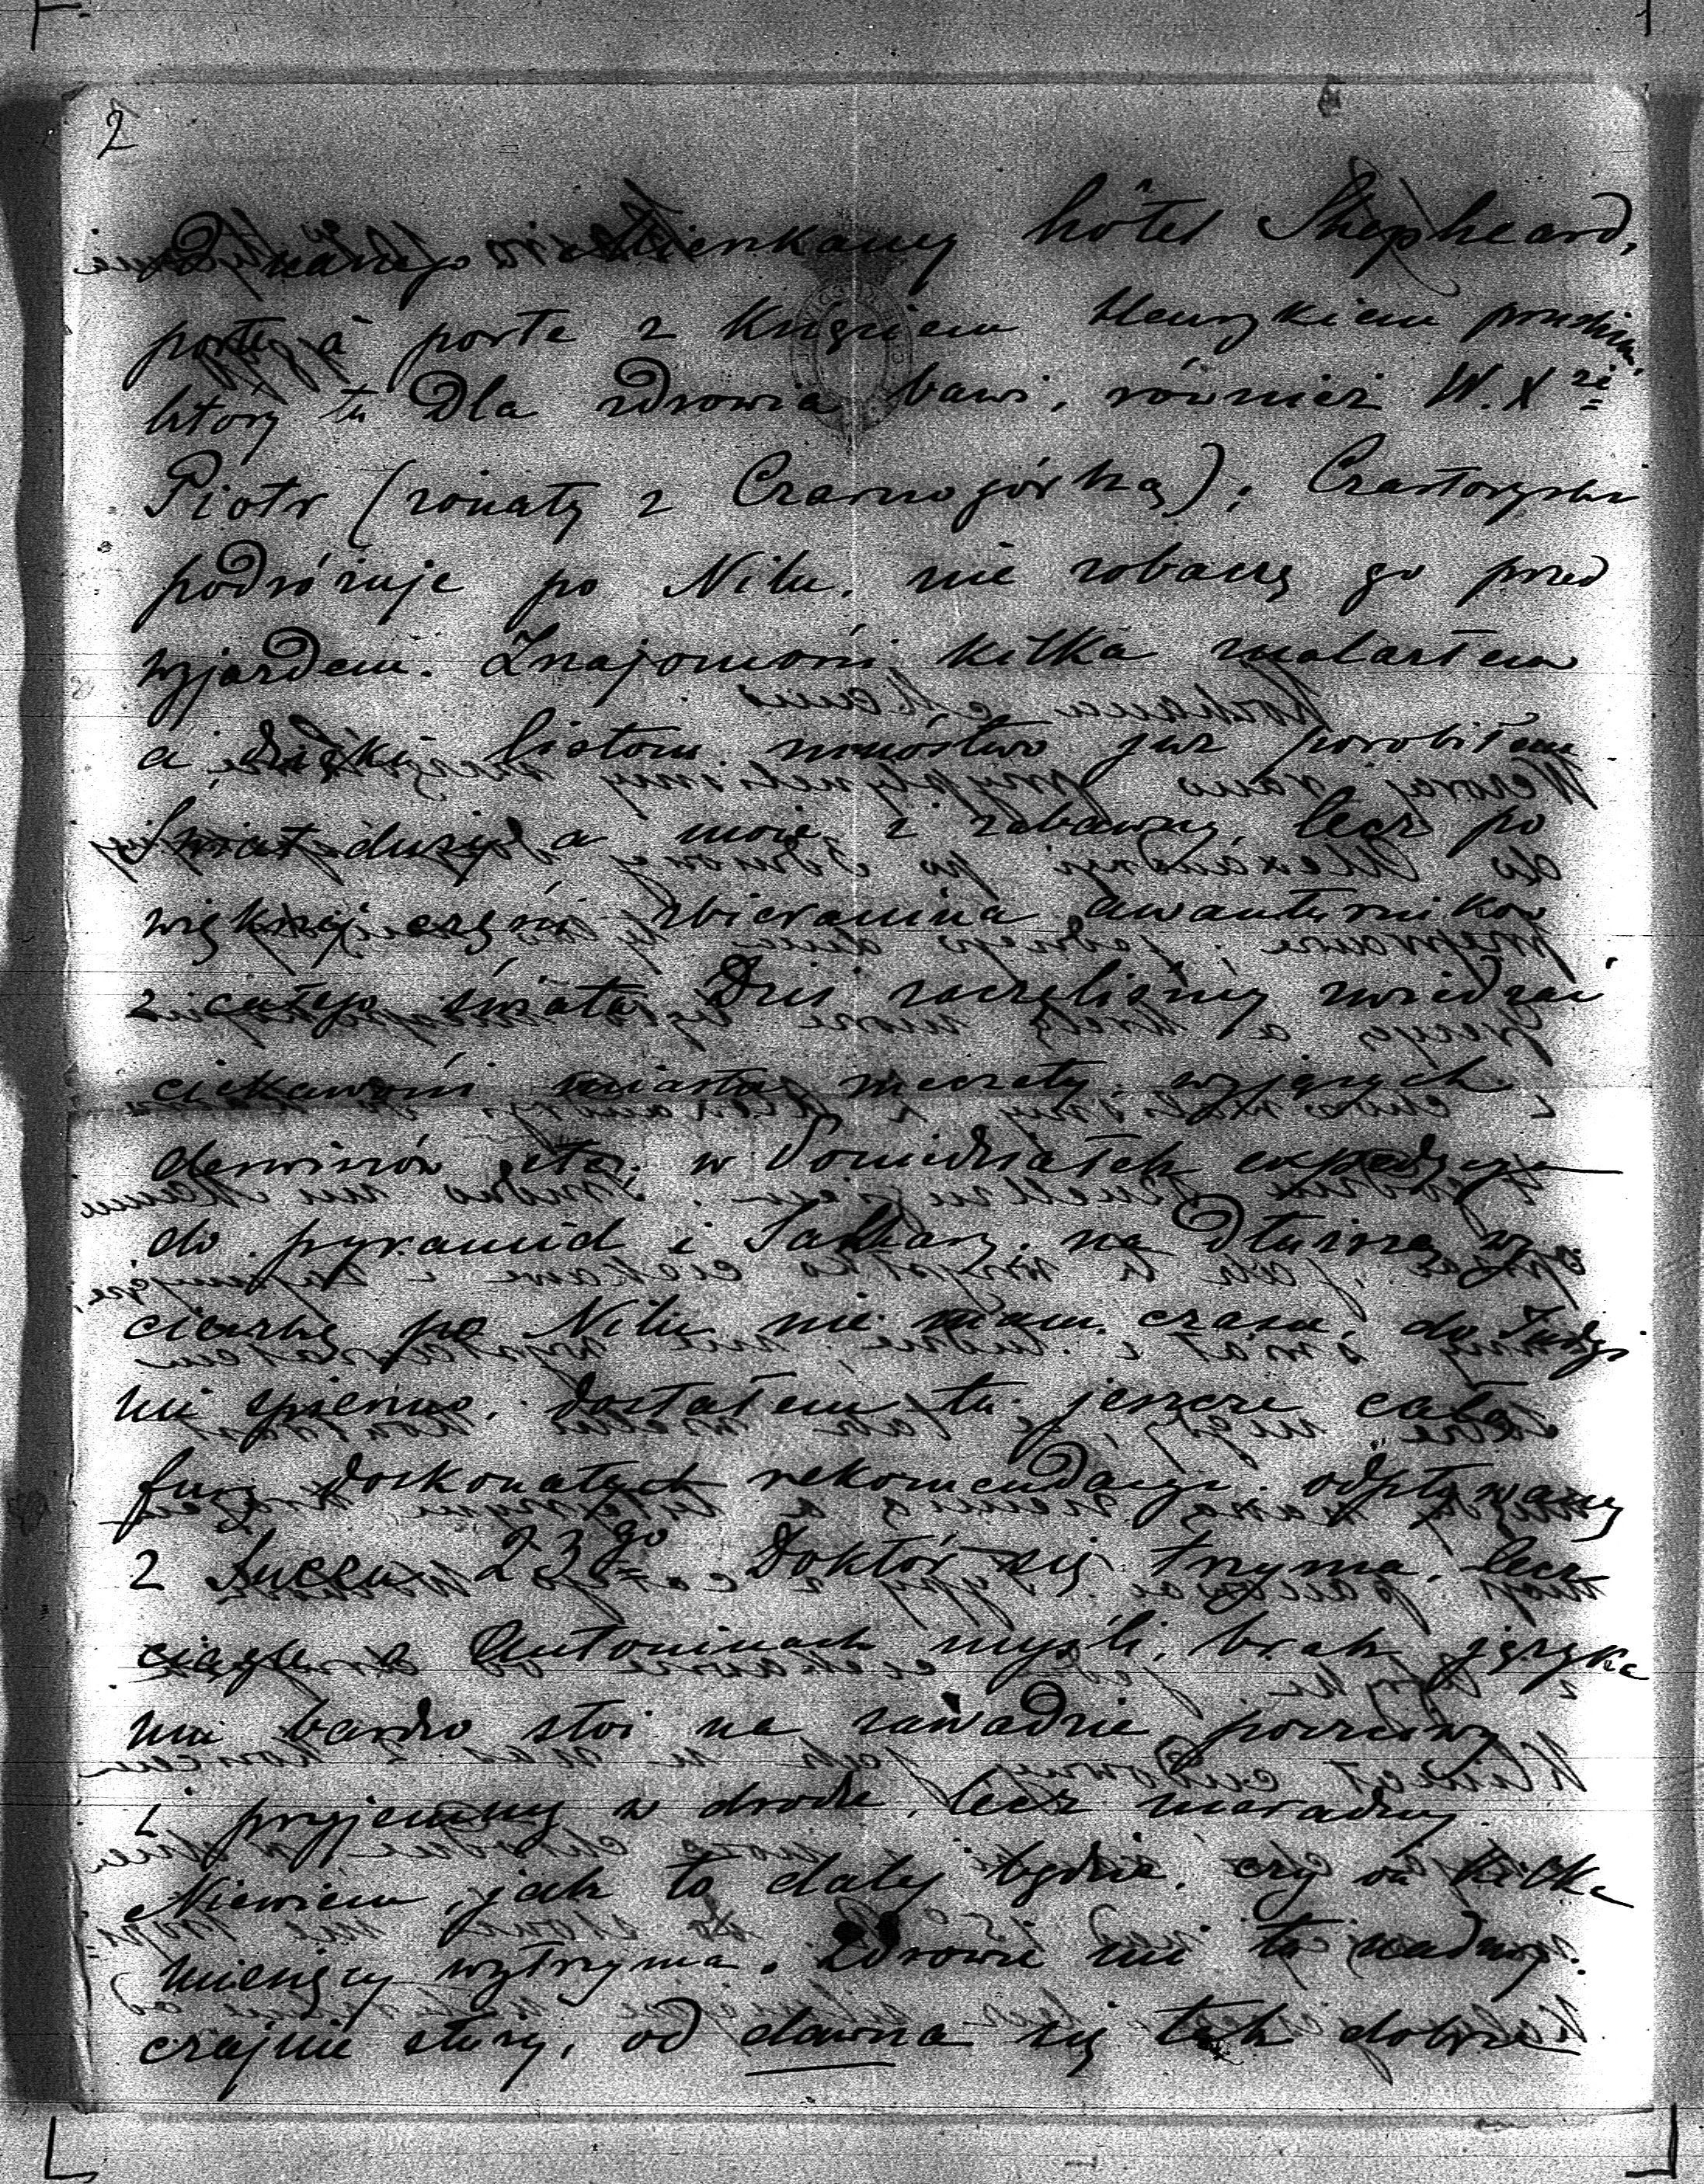 2
mieszkamy hôtel Shepheard,
porte à porte z Księciem Henrykiem pruskim,
który tu dla zdrowia bawi, również W. Xżę
Piotr (żonaty z Czarnogórką); Czartoryski
podróżuje po Nilu, nie zobaczę go przed
wyjazdem. Znajomości kilka znalazłem
a dzięki listom mnóstwo już porobiłem
Świat duży a może i zabawny, lecz po
większej części zbieranina awanturników
z całego świata. Dziś zaczęliśmy zwiedzać
ciekawości miasta, meczety, wyjących
derwiszów etc. w Poniedziałek expedycya
do pyramid i Sakkary, na dłuższą wy
cieczkę po Nilu nie mam czasu, do Indyi
mi spieszno. dostałem tu jeszcze całą
furę doskonałych rekomendacyi. odpływamy
z Suezu 23go Doktór się trzyma, lecz
ciągle o Antoninach myśli, brak języka
mu bardzo stoi na zawadzie, poczciwy
i przyjemny w drodze, lecz nieradny
Niewiem, jak to dalej będzie, czy on kilka
miesięcy wytrzyma. Zdrowie mi tu nadzwy-
czajnie służy, od dawna się tak dobrze